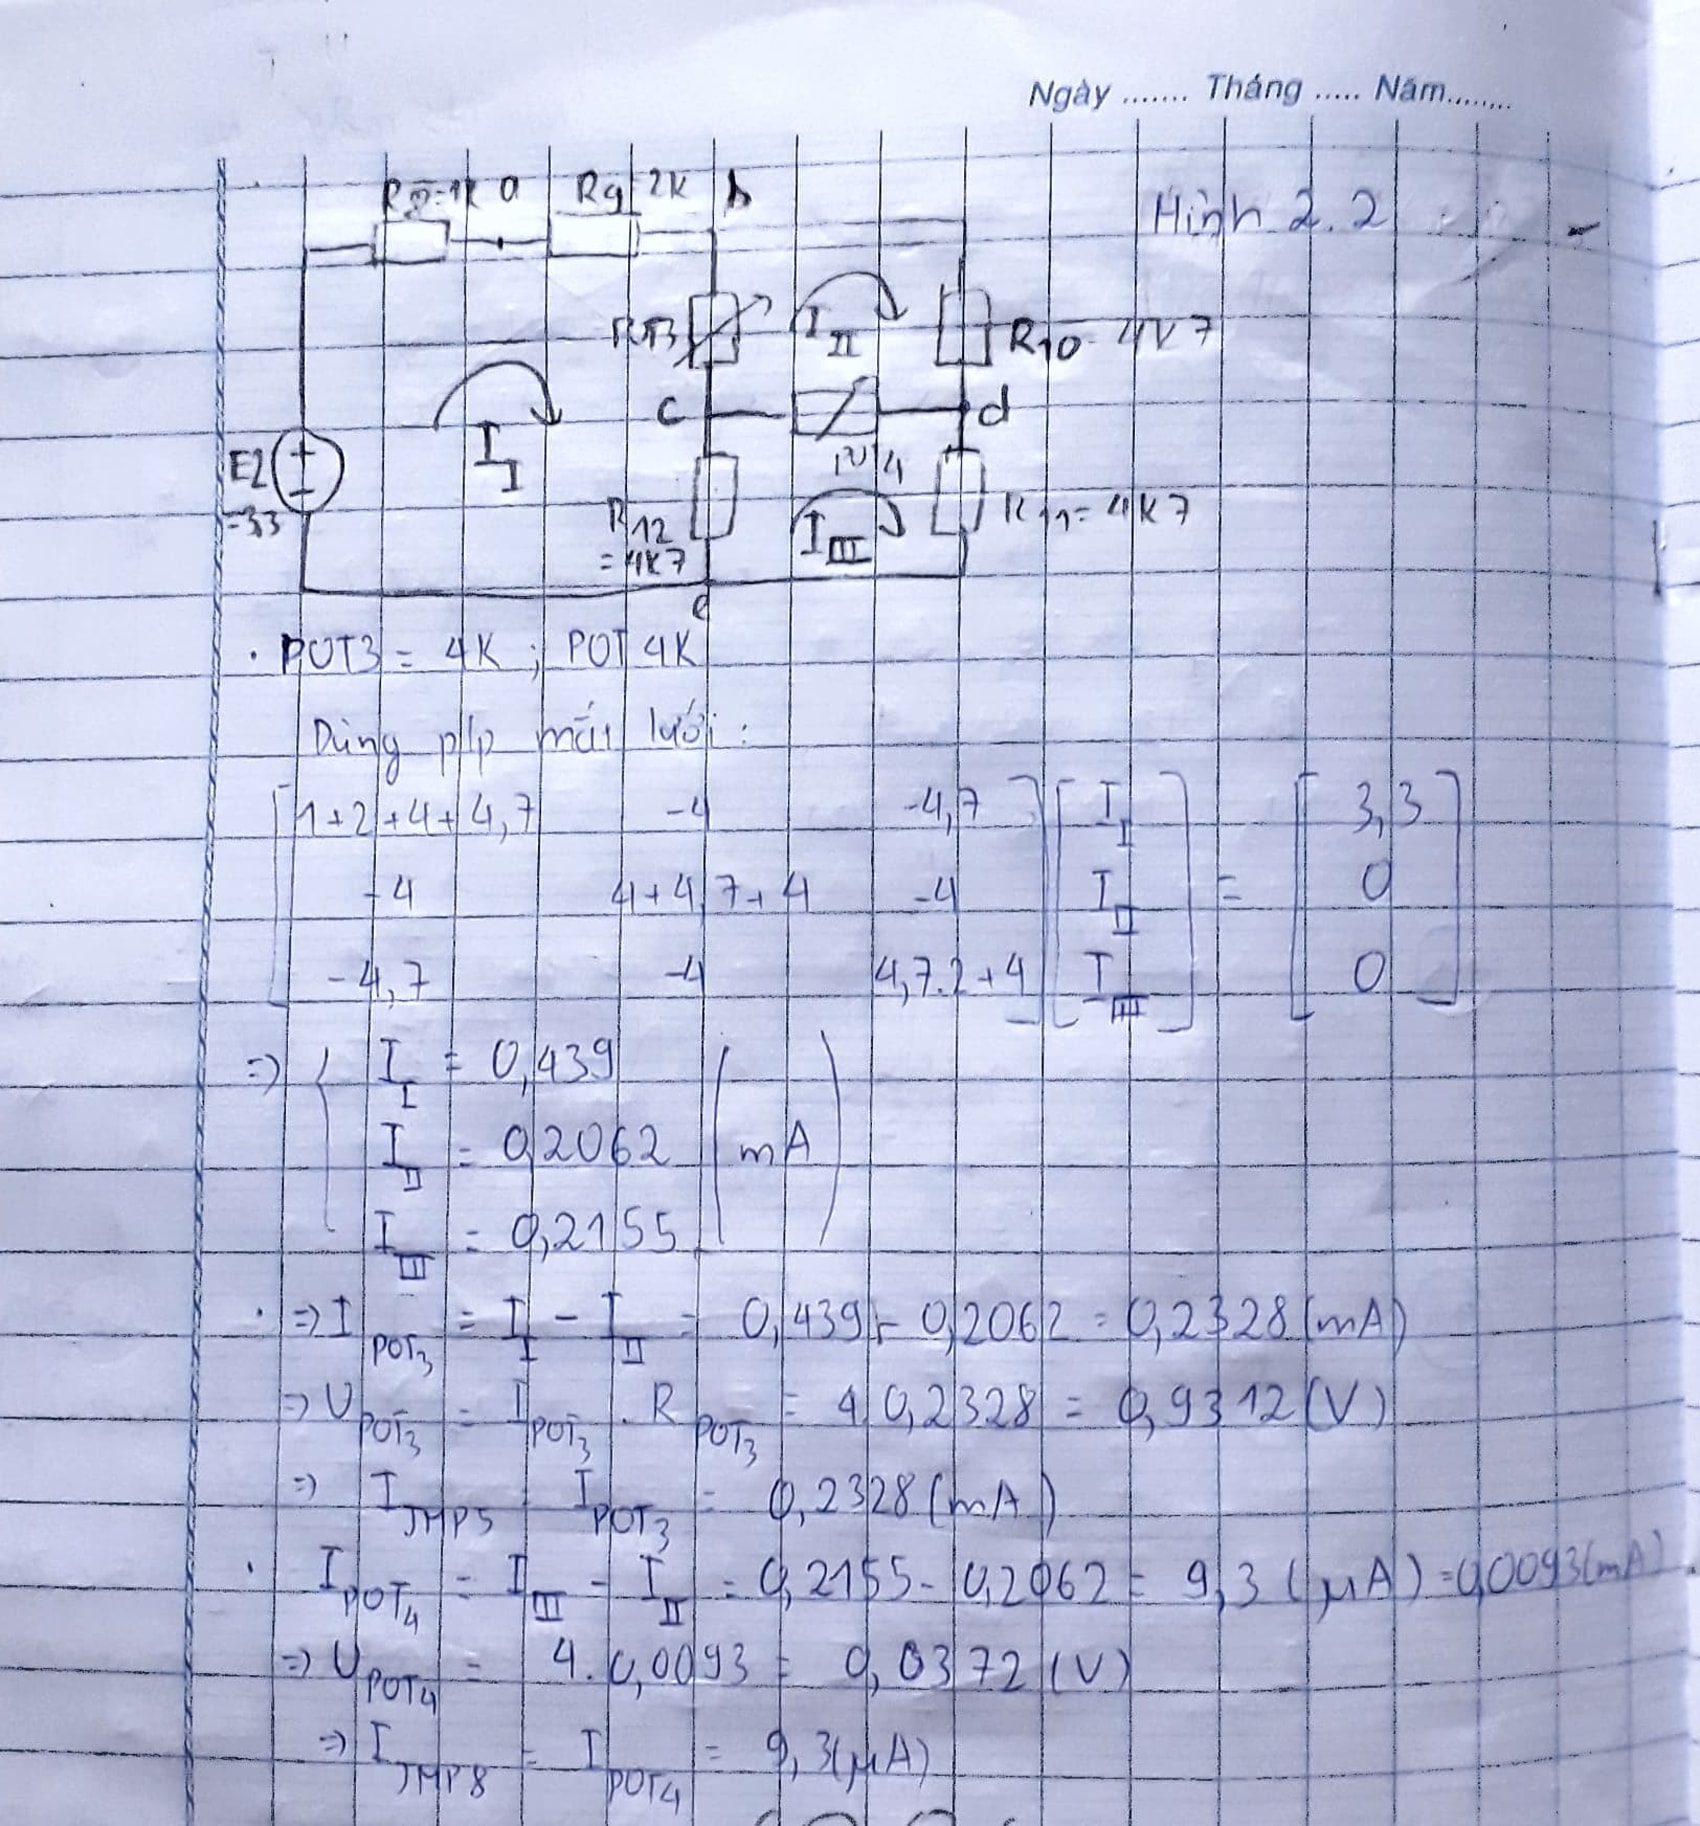 Ngày ....... Tháng ..... Năm........
R8=1K a R9 2K b
Hình 2.2
RT3 I_II R10 = 4K7
c d
E2 =3,3 I_I
R12 = 4K7 I_III R11 = 4K7
e
. POT3 = 4K ; POT 4K
Dùng p/p mắt lưới :
[1+2+4+4,7 -4 -4,7] [I_I] = [3,3]
[-4 4+4,7+4 -4] [I_II] = [0]
[-4,7 -4 4,7.2+4] [I_III] = [0]
=> { I_I = 0,439
I_II = 0,2062 (mA)
I_III = 0,2155
. => I_POT3 = I_I - I_II = 0,439 - 0,2062 = 0,2328 (mA)
=> U_POT3 = I_POT3 . R_POT3 = 4.0,2328 = 0,9312 (V)
=> I_JMP5 = I_POT3 = 0,2328 (mA)
. I_POT4 = I_III - I_II = 0,2155 - 0,2062 = 9,3 (μA) = 0,0093 (mA)
=> U_POT4 = 4.0,0093 = 0,0372 (V)
=> I_JMP8 = I_POT4 = 9,3 (μA)